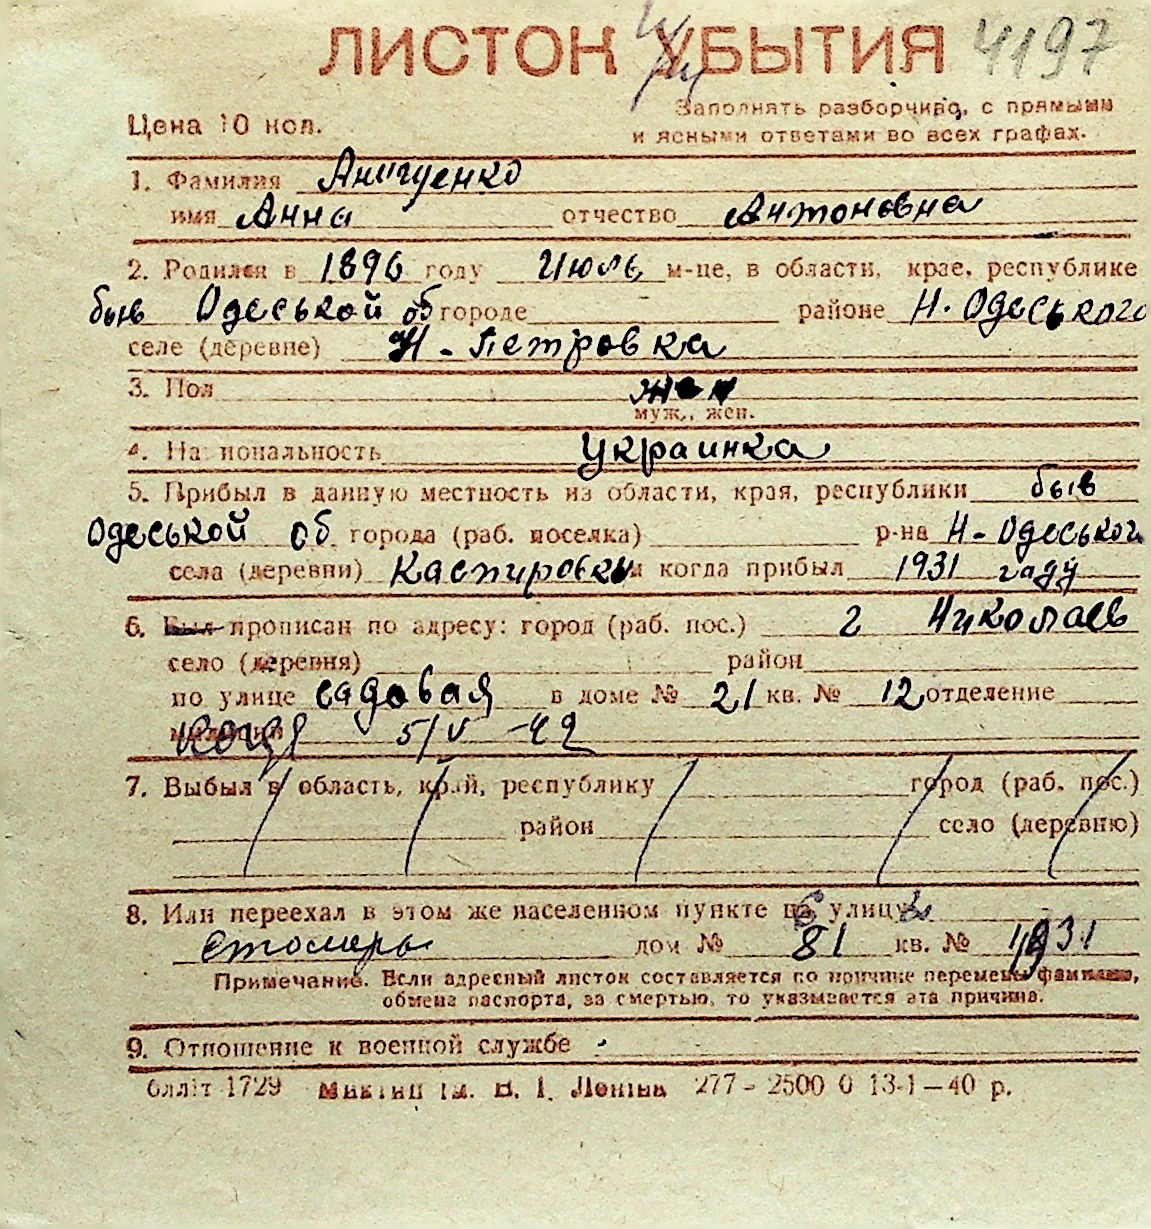 ЛИСТОК УБЫТИЯ 4197
Цена 10 коп.
Заполнять разборчиво, с прямыми
и ясными ответами во всех графах.
1. Фамилия
имя Анна отчество Антоновна
2. Родился в 1896 году Июль м-це, в области, крае, республике
быв Одеськой об городе районе Н. Одеського
селе (деревне) Н-Петровка
3. Пол жен
муж., жен.
4. Национальность Украинка
5. Прибыл в данную местность из области, края, республики быв
Одеськой об. города (раб. поселка) р-на Н-Одеськой
села (деревни) Каспировки и когда прибыл 1931 году
6. Был прописан по адресу: город (раб. пос.) г Николаев
село (деревня) район
по улице садовая в доме № 21 кв. № 12 отделение
милиции 5/V -42
7. Выбыл в область, край, республику город (раб. пос.)
район село (деревню)
8. Или переехал в этом же населенном пункте на улицу
дом № 81 кв. № 1931
Примечание. Если адресный листок составляется по причине перемены фамилии,
обмена паспорта, за смертью, то указывается эта причина.
9. Отношение к военной службе
облліт 1729 ім. В. І. Леніна 277 – 2500 0 13-1 – 40 р.